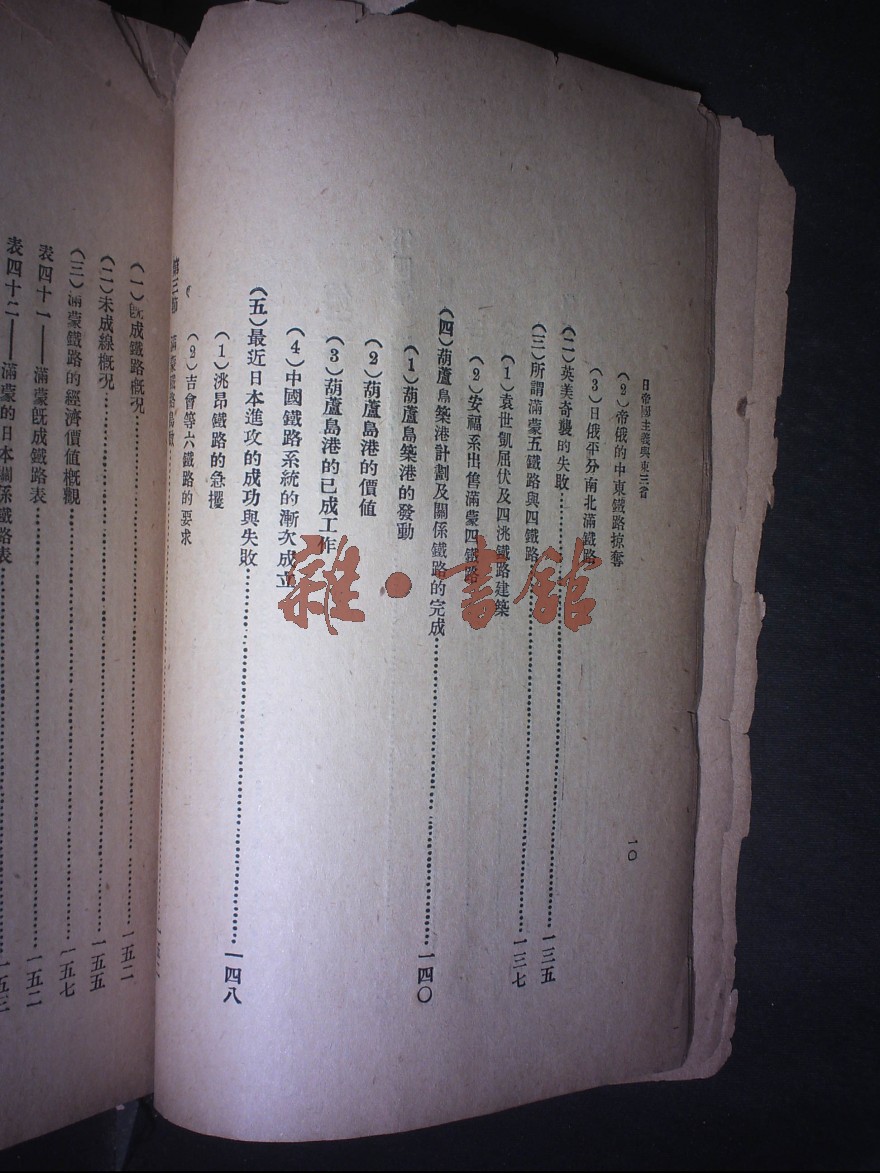 日帝國主義與東三省
一〇
(2)帝俄的中東鐵路掠奪
(3)日俄平分南北滿鐵路
(二)英美奇襲的失敗……一三五
(三)所謂滿蒙五鐵路與四鐵路……一三七
(1)袁世凱屈伏及四洮鐵路建築
(2)安福系出售滿蒙四鐵路
(四)葫蘆島築港計劃及關係鐵路的完成……一四〇
(1)葫蘆島築港的發動
(2)葫蘆島港的價値
(3)葫蘆島港的已成工作
(4)中國鐵路系統的漸次成立
(五)最近日本進攻的成功與失敗……一四八
(1)洮昂鐵路的急攫
(2)吉會等六鐵路的要求
第三節 滿蒙鐵路
(一)旣成鐵路槪況……一五二
(二)未成線槪況……一五五
(三)滿蒙鐵路的經濟價値槪觀……一五七
表四十一——滿蒙旣成鐵路表……一五二
表四十二——滿蒙的日本關係鐵路表……一五三
雜·書館